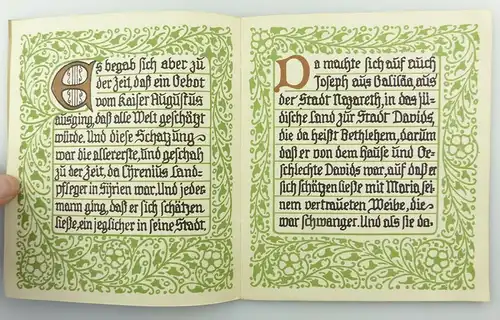 Es begab sich aber zu
der Zeit, daß ein Gebot
vom Kaiser Augustus
ausging, daß alle Welt geschätzt
würde. Und diese Schatzung
war die allererste, und geschah
zu der Zeit, da Cyrenius Land-
pfleger in Syrien war. Und jeder-
mann ging, daß er sich schätzen
ließe, ein jeglicher in seine Stadt.
Da machte sich auf auch
Joseph aus Galiläa, aus
der Stadt Nazareth, in das jü-
dische Land zur Stadt Davids,
die da heißt Bethlehem, darum
daß er von dem Hause und Ge-
schlechte Davids war, auf daß er
sich schätzen ließe mit Maria, sei-
nem vertraueten Weibe, die
war schwanger. Und als sie da-